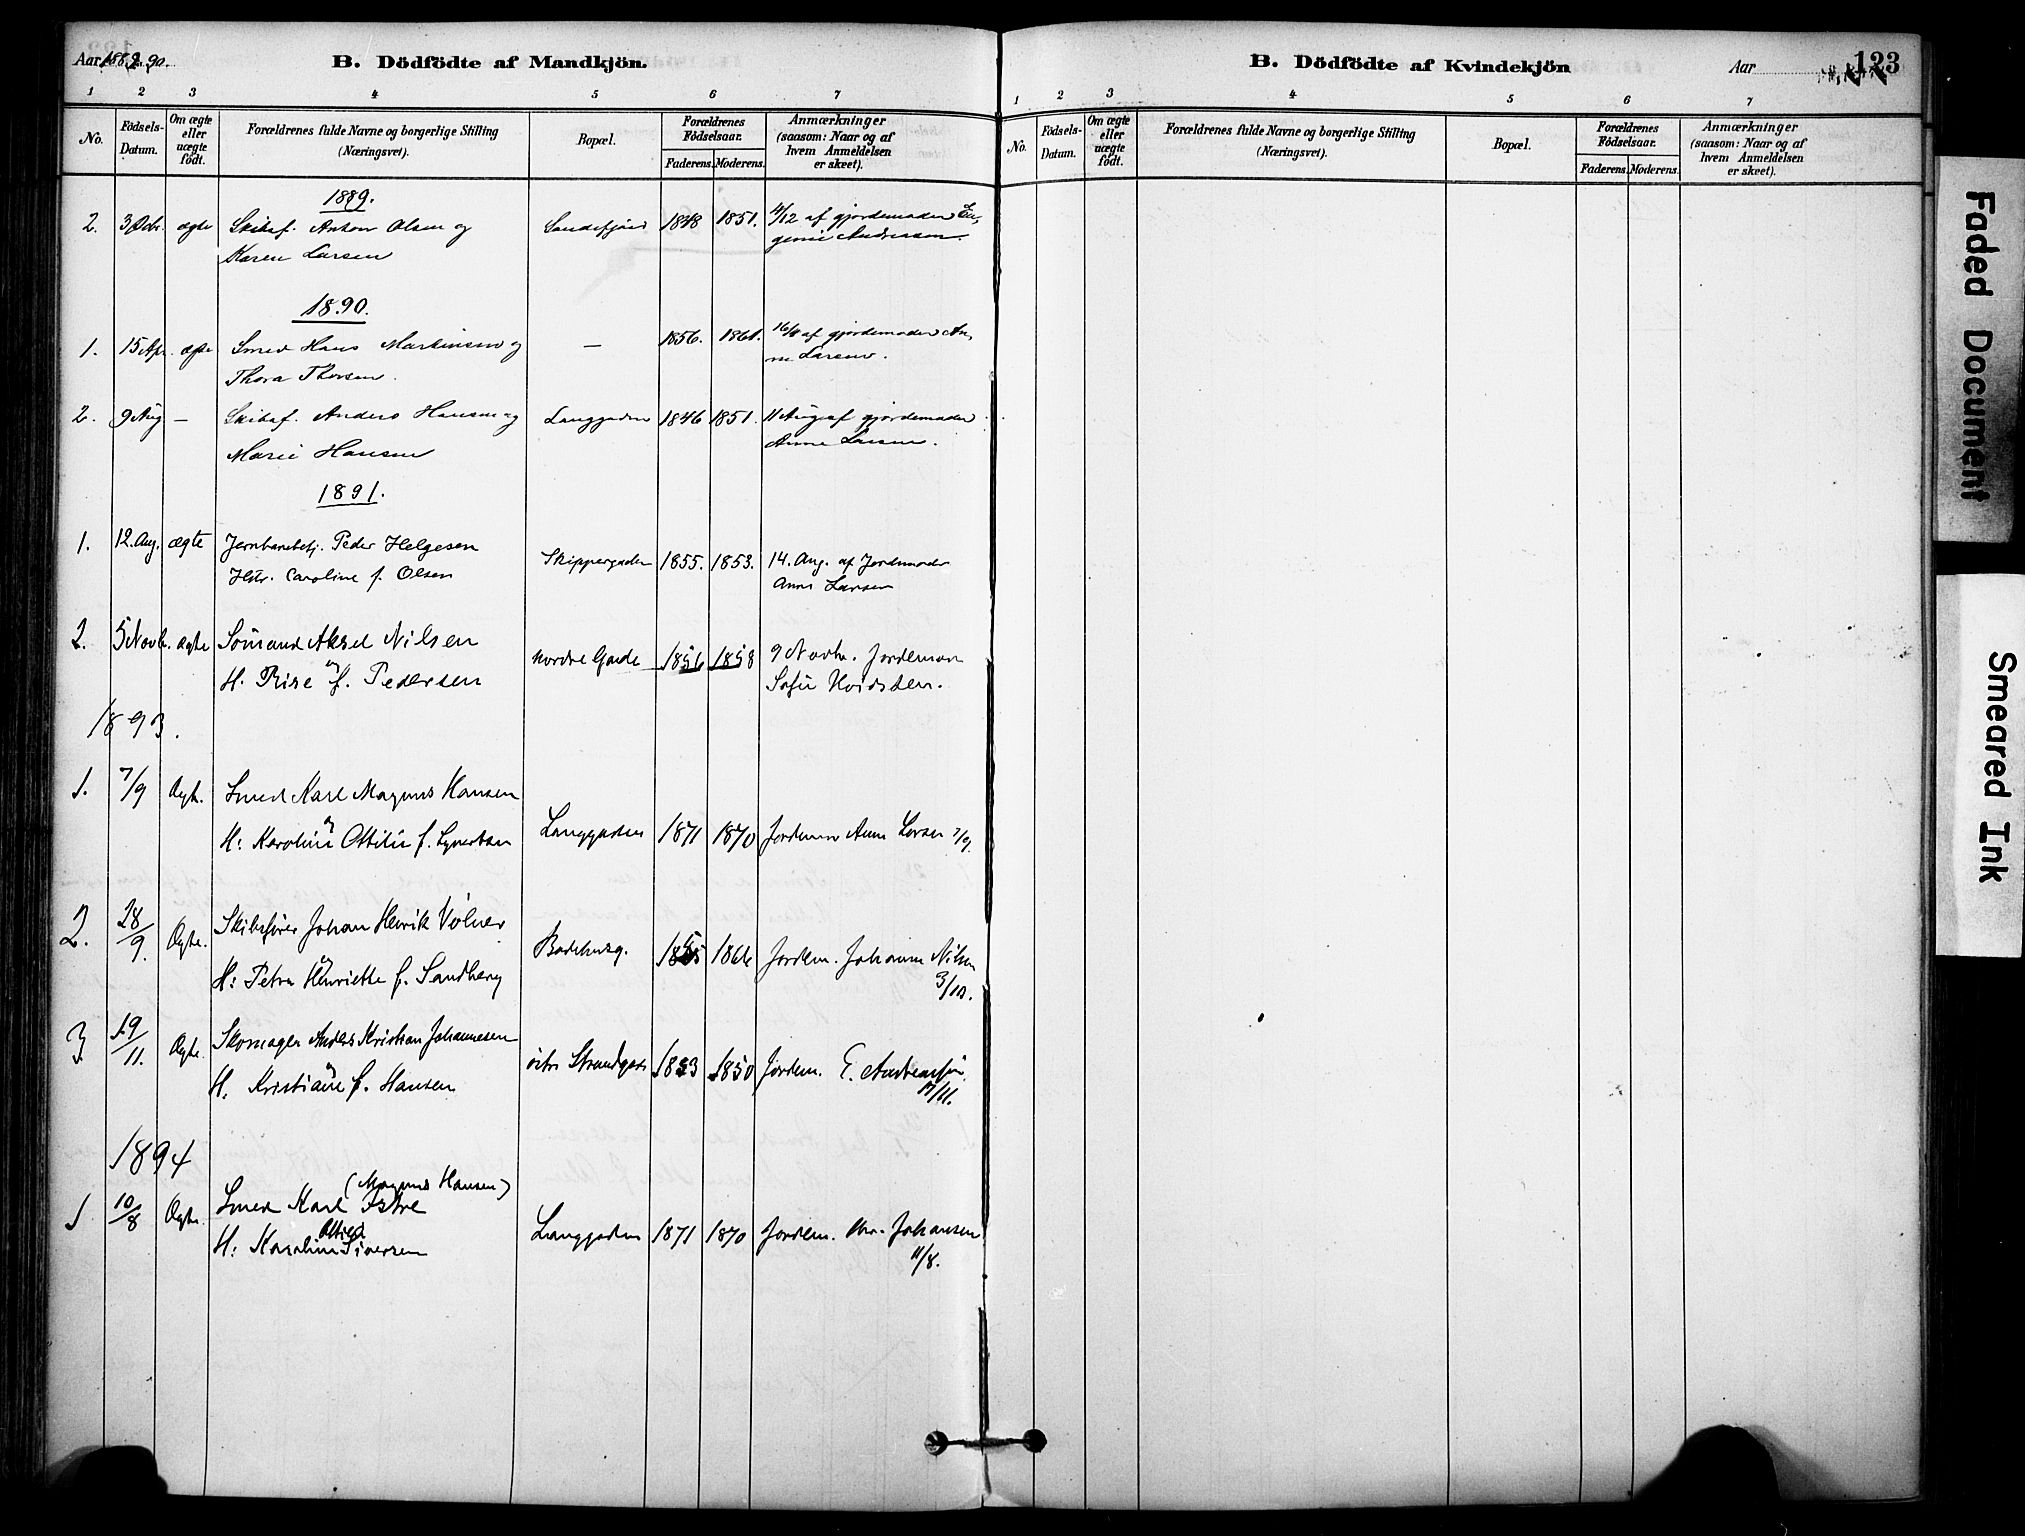 Aar 1889.90.
B. Dödfödte af Mandkjön.
1 2 3 4 5 6 7
No. Födsels-Datum. Om ægte eller uægte födt. Forældrenes fulde Navne og borgerlige Stilling (Næringsvei). Bopæl. Forældrenes Födselsaar. Faderens. Moderens. Anmærkninger (saasom: Naar og af hvem Anmeldelsen er skeet).
1889.
2. 3 ægte Skibsf. Anton Olsen og Sandefjord 1848 1851. 4/12 af gjordemoder Eu-
Karen Larsen genie Andressen.
1890.
1. 15 Apr. ægte Smed Hans Martinsen og — 1856. 1861. 16/4 af gjordemoder An-
Thora Thorsen. ne Larsen.
2. 9 Aug — Skibsf. Anders Hansen og Langgaden 1846 1851. 11 Aug af gjordemoder
Marie Hansen Anne Larsen.
1891.
1. 12. Aug. ægte Jernbanebetj. Peder Helgesen Skippergaden 1855. 1853. 14. Aug. af Jordemoder
Hstr. Caroline f. Olsen Anne Larsen
2. 5 Novbr. ægte Sömand Aksel Nilsen Nordre Gade 1856 1858 9 Novbr. Jordemor
H. f. Pedersen Sofie
1893.
1. 7/9 Ægte. Smed Karl Magnus Hansen
H: Karoline Ottilie f. Langgaden 1871 1870 Jordemor Anne Larsen 7/9.
2. 28/9. Ægte. Skibsförer Johan Henrik Völner
H: Petra Henriette f. Sandberg Badehusg. 1866 Jordem. Johanne Nilsen 3/10.
3. 19/11. Ægte. Skomager Anders Kristian Johannesen
H. Kristiane f. Hansen östre Strandgade 1850 Jordem. E. /11.
1894
(Magnus Hansen)
1 10/8 Ægte. Smed Karl
Ottilie
H: Karoline Siversen Langgaden 1871 1870 Jordem. Johansen 11/8.
B. Dödfödte af Kvindekjön
Aar
123
1 2 3 4 5 6 7
No. Födsels-Datum. Om ægte eller uægte födt. Forældrenes fulde Navne og borgerlige Stilling (Næringsvei). Bopæl. Forældrenes Födselsaar. Faderens. Moderens. Anmærkninger (saasom: Naar og af hvem Anmeldelsen er skeet).
Faded Document
Smeared Ink